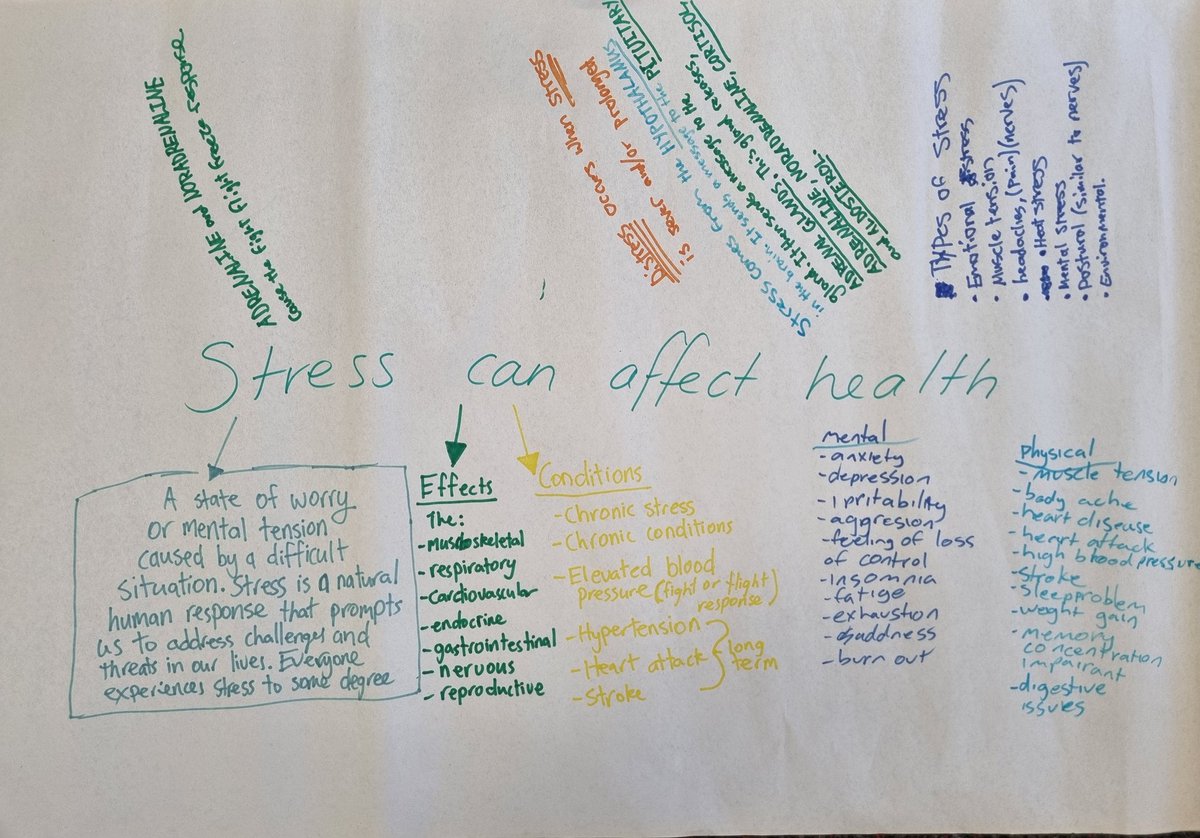 ADRENALINE and NORADRENALINE
cause the fight flight freeze response
Distress occurs when stress
is sever and/or prolonged
Stress comes from the HYPOTHALAMUS
in the brain. It sends a message to the PITUITARY
gland. It then sends a message to the
ADRENAL GLANDS. This gland releases,
ADRENALINE, NORADRENALINE, CORTISOL,
and ALDOSTEROL.
TYPES OF Stress
• Emotional stress
• Muscle tension
• headaches, (pain) (nerves)
• Heat stress
• Mental stress
• Postural (similar to nerves)
• Environmental.
Stress can affect health
A state of worry
or mental tension
caused by a difficult
situation. Stress is a natural
human response that prompts
us to address challenges and
threats in our lives. Everyone
experiences stress to some degree
Effects
The:
- musculoskeletal
- respiratory
- cardiovascular
- endocrine
- gastrointestinal
- nervous
- reproductive
Conditions
- Chronic stress
- Chronic conditions
- Elevated blood
pressure (fight or flight
response)
- Hypertension
- Heart attack
- Stroke
long
term
mental
- anxiety
- depression
- irritability
- aggresion
- feeling of loss
of control
- insomnia
- fatige
- exhaustion
- saddness
- burn out
physical
- muscle tension
- body ache
- heart disease
- heart attack
- high blood pressure
- stroke
- sleep problem
- weght gain
- memory
concentration
impairant
- digestive
issues